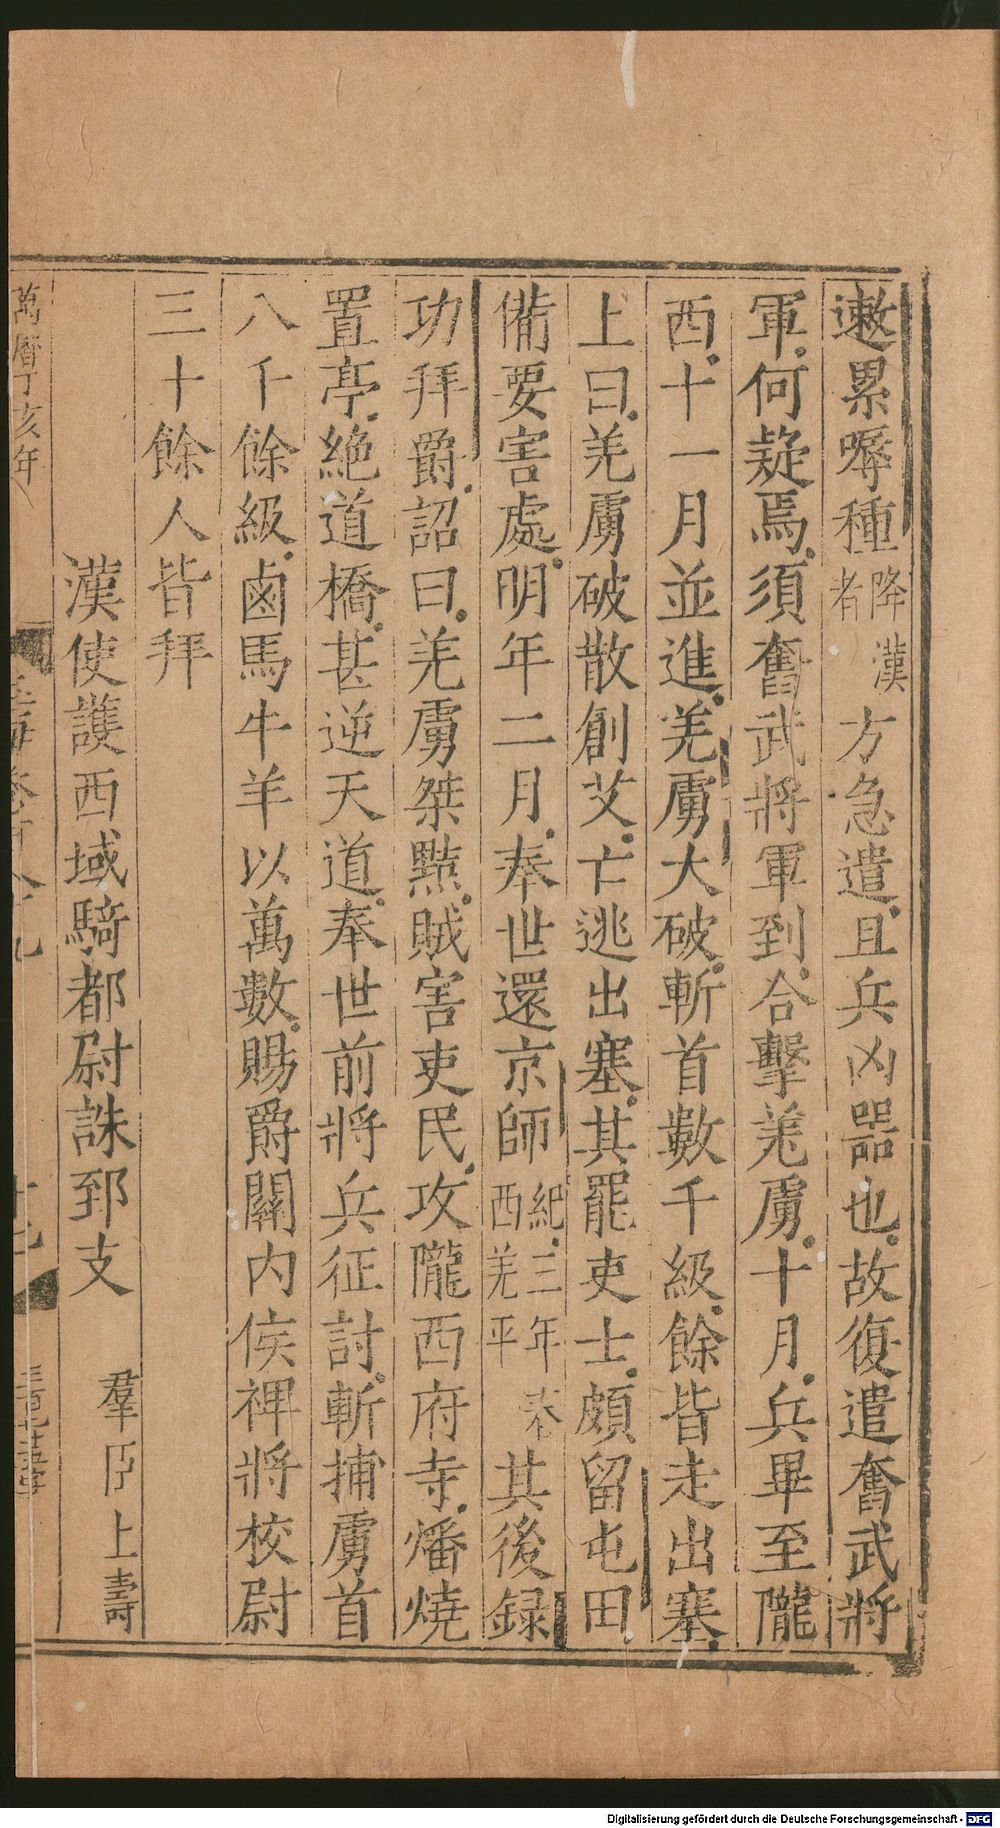 遬累嗕種降者漢方急遣且兵凶器也故復遣奮武將
軍何疑焉須奮武將軍到合擊羌虜十月兵畢至隴
西十一月並進羌虜大破斬首數千級餘皆走出塞
上曰羌虜破散創艾亡逃出塞其罷吏士頗留屯田
備要害處明年二月奉世還京師紀三年春西羌平其後録
功拜爵詔曰羌虜桀黠賊害吏民攻隴西府寺燔燒
置亭絶道橋甚逆天道奉世前將兵征討斬捕虜首
八千餘級鹵馬牛羊以萬數賜爵關內侯裨將校尉
三十餘人皆拜
漢使護西域騎都尉誅郅支 羣臣上壽
萬曆丁亥年
Digitalisierung gefördert durch die Deutsche Forschungsgemeinschaft - DFG